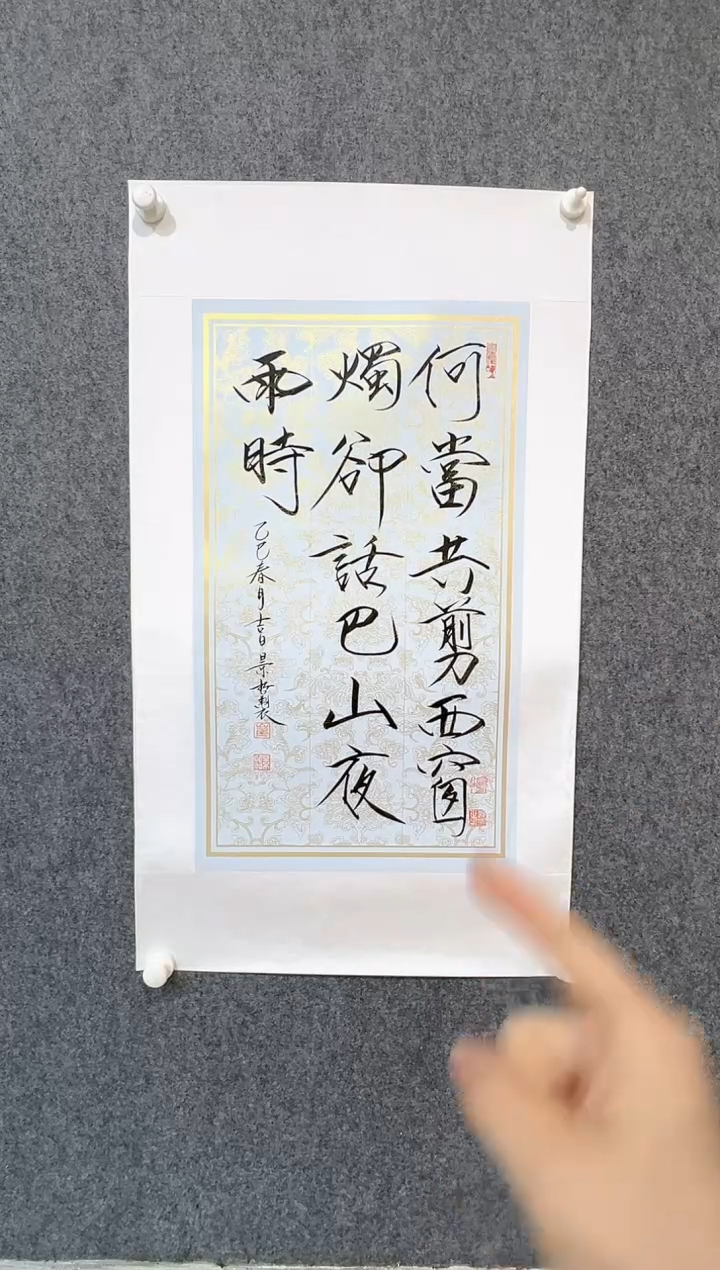 何當共剪西窗
燭卻話巴山夜
雨時
乙巳春月吉日景